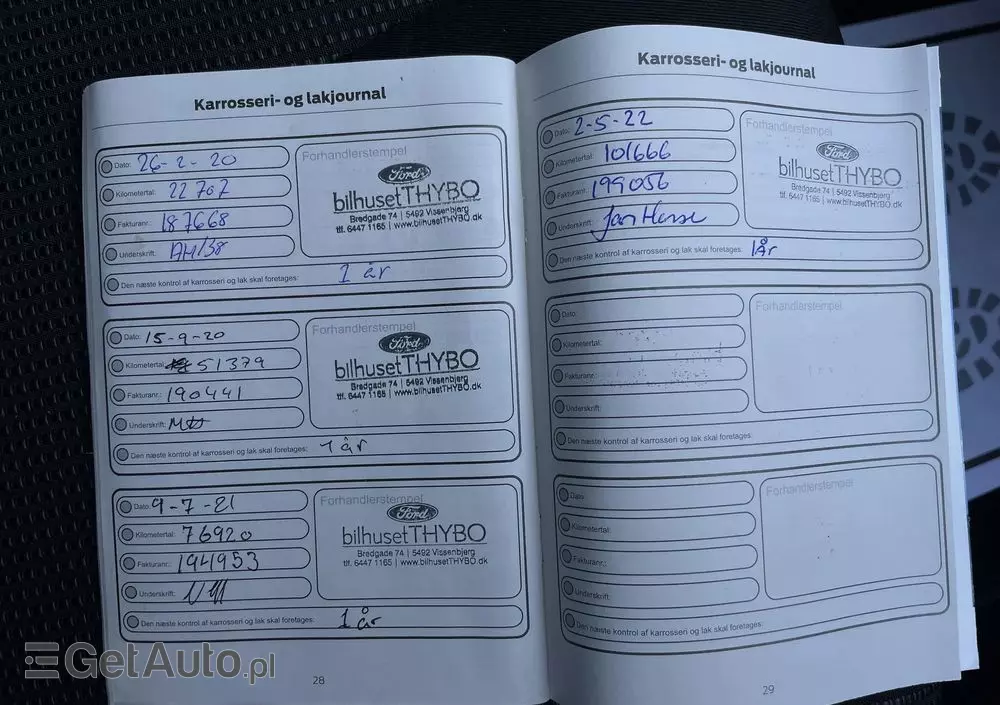 Karrosseri- og lakjournal
Dato: 26-2-20
Kilometertal: 22707
Fakturanr.: 187668
Underskrift:
Forhandlerstempel
Ford
bilhusetTHYBO
Bredgade 74 | 5492 Vissenbjerg
tlf. 6447 1165 | www.bilhusetTHYBO.dk
Den næste kontrol af karrosseri og lak skal foretages: 1 år
Dato: 15-9-20
Kilometertal: 51379
Fakturanr.: 190441
Underskrift:
Forhandlerstempel
Ford
bilhusetTHYBO
Bredgade 74 | 5492 Vissenbjerg
tlf. 6447 1165 | www.bilhusetTHYBO.dk
Den næste kontrol af karrosseri og lak skal foretages: 1 år
Dato: 9-7-21
Kilometertal: 76920
Fakturanr.: 194953
Underskrift:
Forhandlerstempel
Ford
bilhusetTHYBO
Bredgade 74 | 5492 Vissenbjerg
tlf. 6447 1165 | www.bilhusetTHYBO.dk
Den næste kontrol af karrosseri og lak skal foretages: 1 år
28
Karrosseri- og lakjournal
Dato: 2-5-22
Kilometertal: 101666
Fakturanr.: 199056
Underskrift:
Forhandlerstempel
Ford
bilhusetTHYBO
Bredgade 74 | 5492 Vissenbjerg
tlf. 6447 1165 | www.bilhusetTHYBO.dk
Den næste kontrol af karrosseri og lak skal foretages: 1År
Dato:
Kilometertal:
Fakturanr.:
Underskrift:
Forhandlerstempel
Den næste kontrol af karrosseri og lak skal foretages:
Dato:
Kilometertal:
Fakturanr.:
Underskrift:
Forhandlerstempel
Den næste kontrol af karrosseri og lak skal foretages:
29
GetAuto.pl